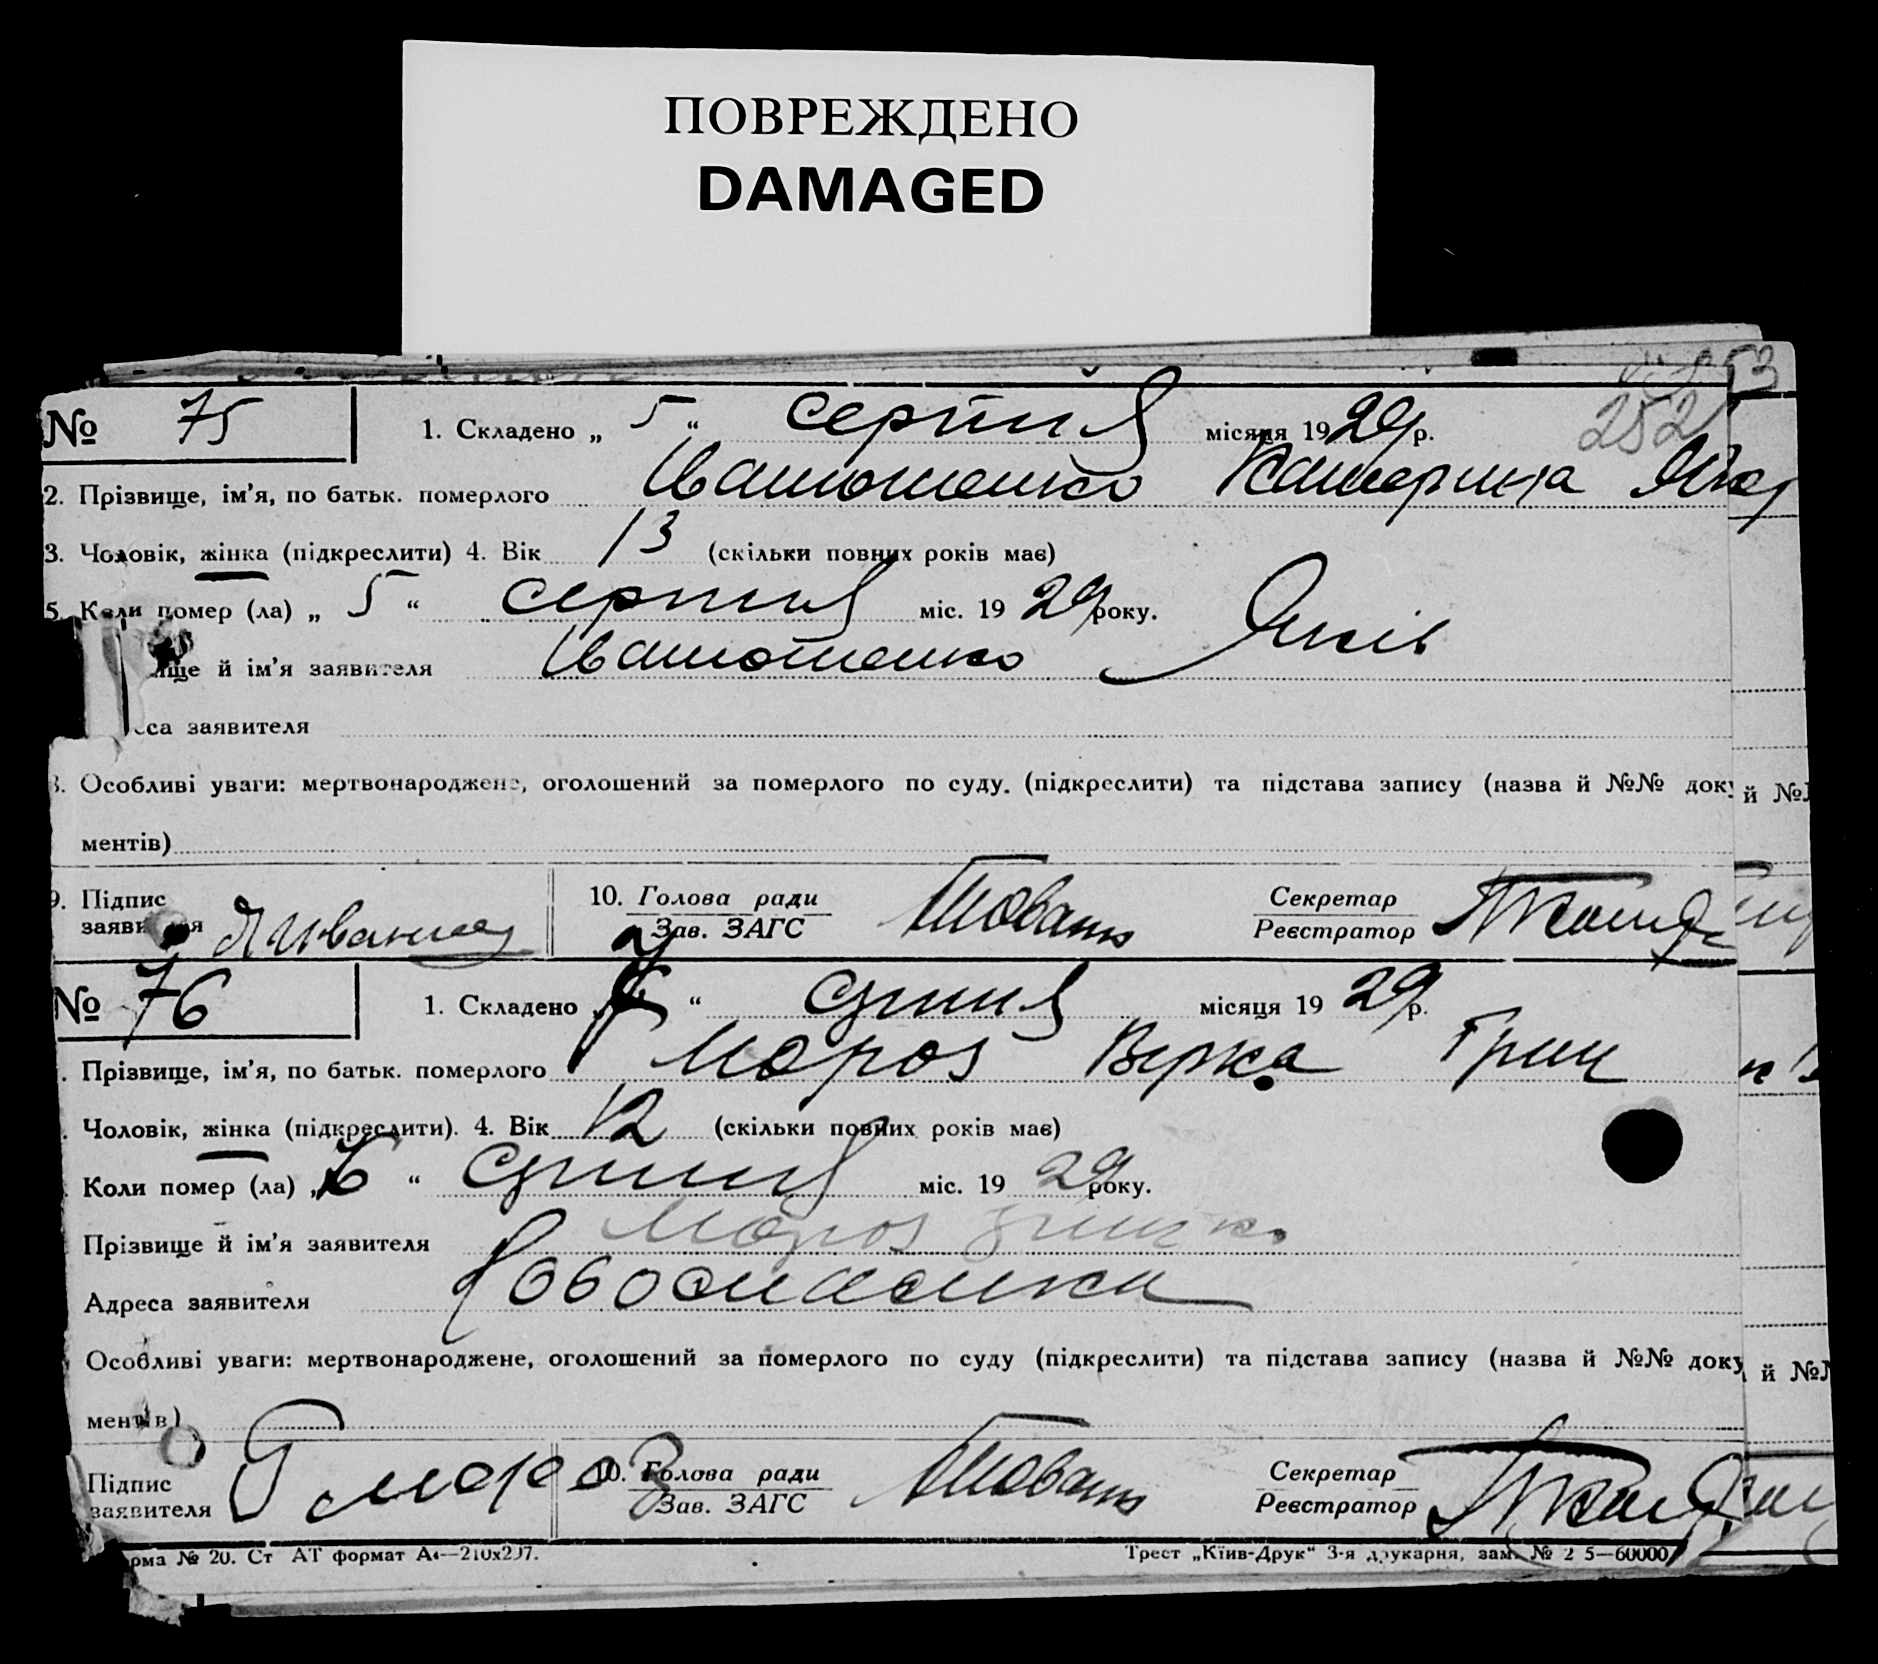 ПОВРЕЖДЕНО
DAMAGED
252
№ 75 1. Складено „ 5 “ серпня місяця 1929 р.
2. Прізвище, ім’я, по батьк. померлого Катерина
3. Чоловік, жінка (підкреслити) 4. Вік 13 (скільки повних років має)
5. Коли помер (ла) „ 5 “ серпня міс. 19 29 року.
ище й ім’я заявителя Яків
са заявителя
8. Особливі уваги: мертвонароджене, оголошений за померлого по суду. (підкреслити) та підстава запису (назва й №№ доку
й №№
ментів)
9. Підпис заявителя
10. Голова ради
Зав. ЗАГС
Секретар
Реєстратор
№ 76 1. Складено „ “ серпня місяця 19 29 р.
. Прізвище, ім’я, по батьк. померлого Мороз Вірка Гриц
. Чоловік, жінка (підкреслити). 4. Вік 12 (скільки повних років має)
. Коли помер (ла) „ 6 “ серпня міс. 19 29 року.
Прізвище й ім’я заявителя Мороз
Адреса заявителя
Особливі уваги: мертвонароджене, оголошений за померлого по суду (підкреслити) та підстава запису (назва й №№ доку
й №№
ментів)
Підпис заявителя Г Мороз
10. Голова ради
Зав. ЗАГС
Секретар
Реєстратор
орма № 20. Ст АТ формат А4—210х297.
Трест „Київ-Друк“ 3-я друкарня, зам. № 2 5—60000